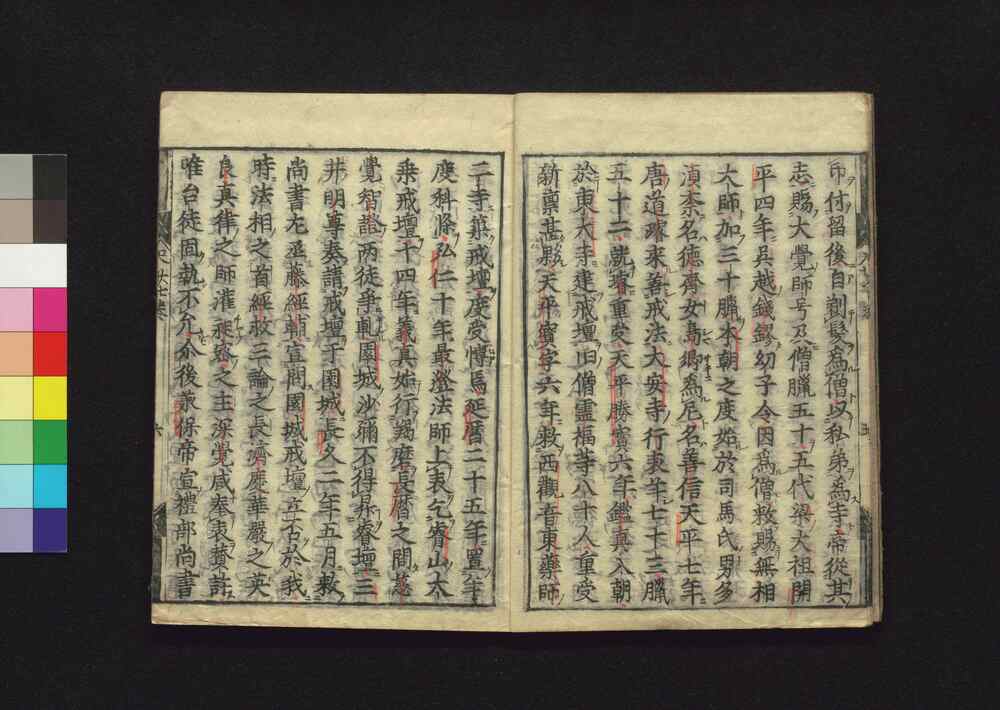 印付留後自剃髮爲僧以私第爲寺帝從其
志賜大覺師号及僧臘五十五代梁大祖開
平四年吳越錢鏐幼子令因爲僧救賜無相
大師加三十臘本朝之度始於司馬氏男多
湏奈名德齊女島爲尼名善信天平七年
唐道璿來善戒法大安寺行表年七十三臘
五十二就璿重受天平勝寳六年鑑真入朝
於東大寺建戒壇旧僧靈福等八十人重受
新禀甚夥天平寳字六年救西觀音東藥師
二寺築戒壇度受慱焉延暦二十五年置年
度科條弘仁十年最澄法師上表乞睿山大
乗戒壇十四年義真始行羯磨長暦之間慈
覺智證兩徒爭軋園城沙彌不得昇睿壇三
井明尊奏請戒壇于園城長久二年五月救
尚書左丞藤經輔宣問園城戒壇立否於我
時法相之首經救三論之長濟慶華嚴之英
良真律之師灌之主深覺咸奉表賛許
唯台徒固執不允介後兼保帝宣禮部尚書